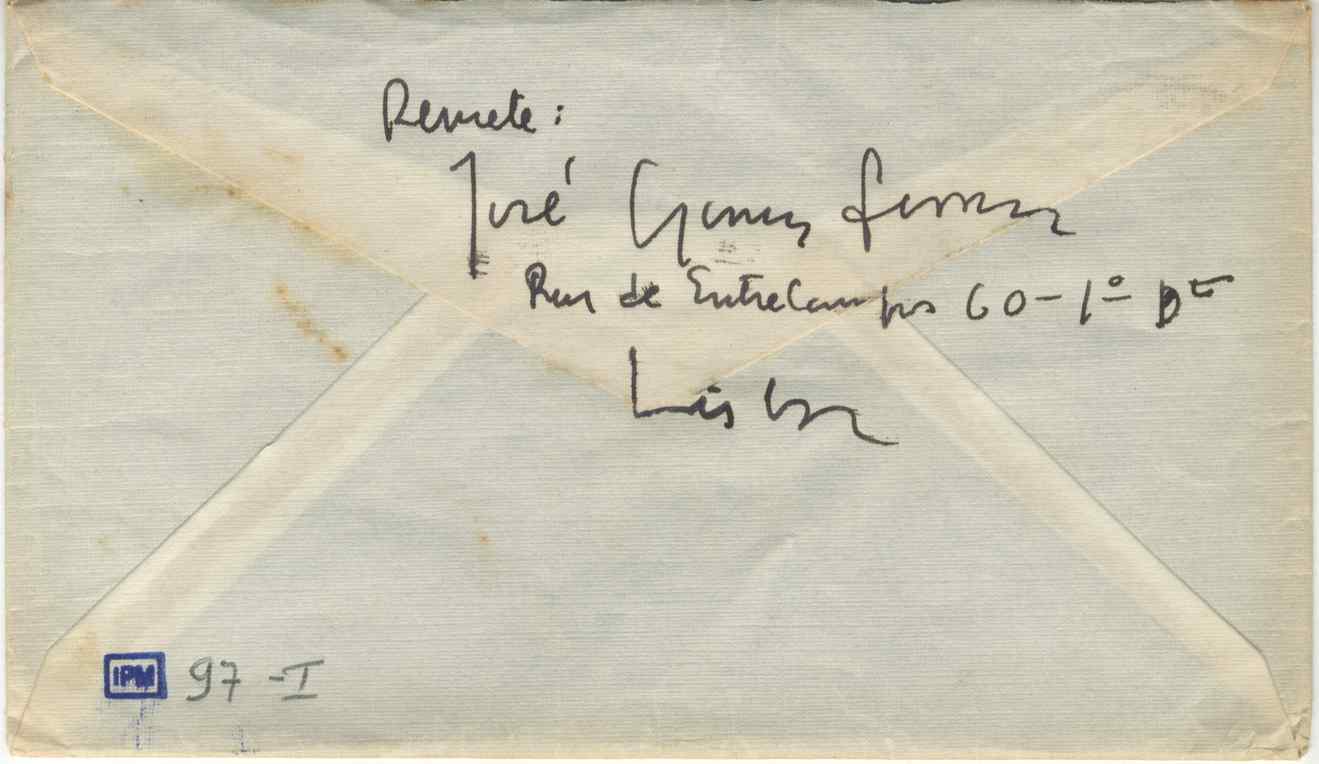 Remete:
José Gomes Ferreira
Rua de Entrecampos 60-1º Dte
Lisboa
IPM 97-I